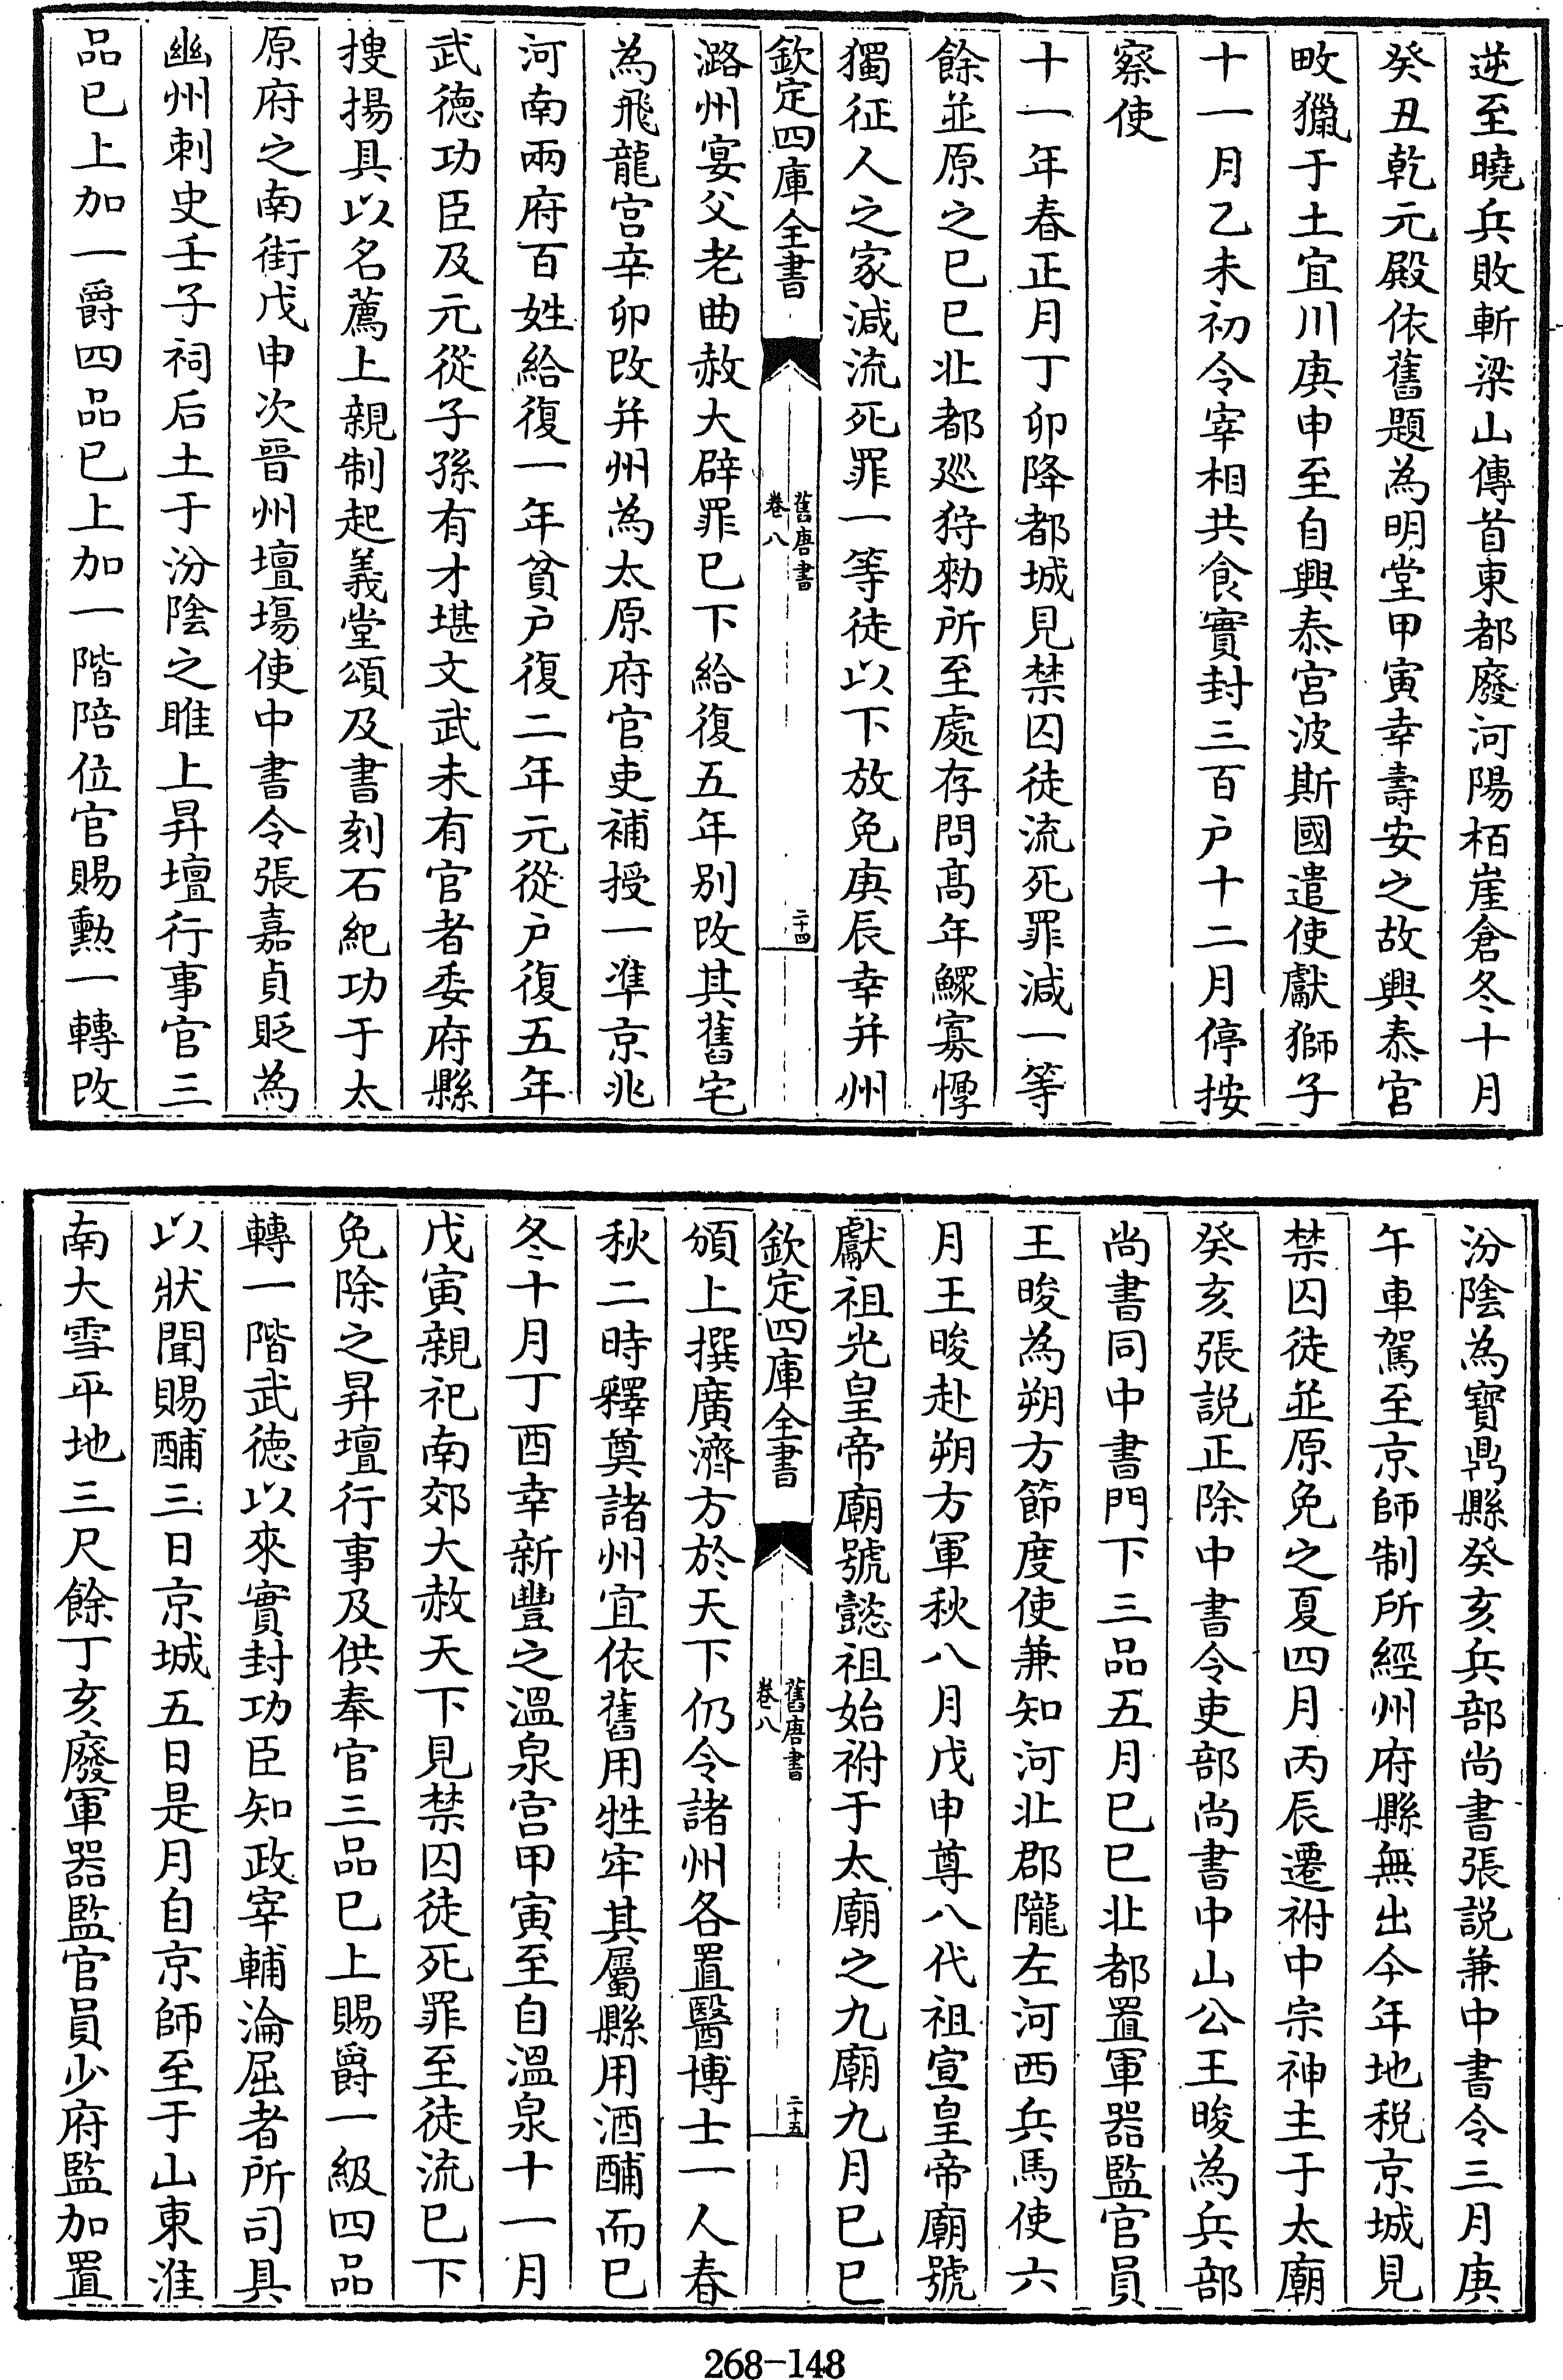 逆至曉兵敗斬梁山傳首東都廢河陽栢崖倉冬十月
癸丑乾元殿依舊題為明堂甲寅幸壽安之故興泰官
畋獵于土宜川庚申至自興泰宮波斯國遣使獻獅子
十一月乙未初令宰相共食實封三百户十二月停按
察使
十一年春正月丁卯降都城見禁囚徒流死罪減一等
餘並原之已巳北都廵狩勑所至處存問高年鰥寡惸
獨征人之家減流死罪一等徒以下放免庚辰幸并州
欽定四庫全書
舊唐書
卷八
二十四
潞州宴父老曲赦大辟罪已下給復五年别改其舊宅
為飛龍宮辛卯改并州為太原府官吏補授一準京兆
河南兩府百姓給復一年貧户復二年元從户復五年
武德功臣及元從子孫有才堪文武未有官者委府縣
搜揚具以名薦上親制起義堂頌及書刻石紀功于太
原府之南街戊申次晉州壇塲使中書令張嘉貞貶為
幽州刺史壬子祠后土于汾陰之脽上昇壇行事官三
品已上加一爵四品已上加一階陪位官賜勲一轉改
汾陰為寶鼎縣癸亥兵部尚書張説兼中書令三月庚
午車駕至京師制所經州府縣無出今年地税京城見
禁囚徒並原免之夏四月丙辰遷祔中宗神主于太廟
癸亥張説正除中書令吏部尚書中山公王晙為兵部
尚書同中書門下三品五月已巳北都置軍器監官員
王晙為朔方節度使兼知河北郡隴左河西兵馬使六
月王晙赴朔方軍秋八月戊申尊八代祖宣皇帝廟號
獻祖光皇帝廟號懿祖始祔于太廟之九廟九月已巳
欽定四庫全書
舊唐書
卷八
二十五
頒上撰廣濟方於天下仍令諸州各置醫博士一人春
秋二時釋奠諸州宜依舊用牲牢其屬縣用酒酺而已
冬十月丁酉幸新豐之溫泉宮甲寅至自溫泉十一月
戊寅親祀南郊大赦天下見禁囚徒死罪至徒流已下
免除之昇壇行事及供奉官三品已上賜爵一級四品
轉一階武德以來實封功臣知政宰輔淪屈者所司具
以狀聞賜酺三日京城五日是月自京師至于山東淮
南大雪平地三尺餘丁亥廢軍器監官員少府監加置
268-148